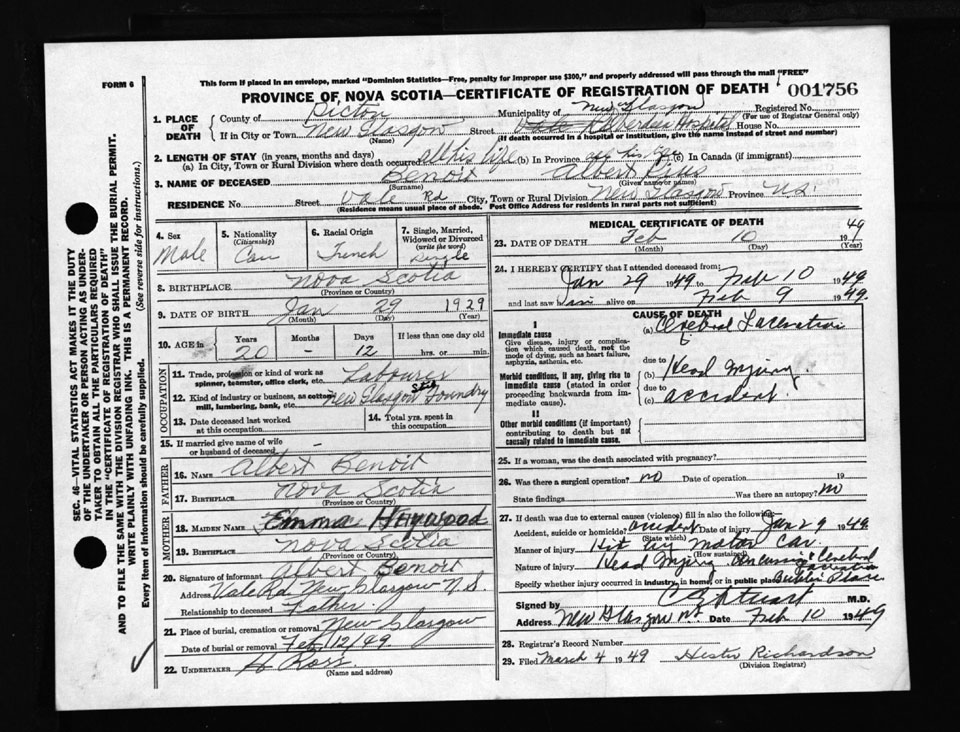 This form if placed in an envelope, marked "Dominion Statistics—Free, penalty for improper use $300," and properly addressed will pass through the mail "FREE"
FORM 6
PROVINCE OF NOVA SCOTIA—CERTIFICATE OF REGISTRATION OF DEATH 001756
1. PLACE OF DEATH County of Pictou Municipality of New Glasgow Registered No.
(For use of Registrar General only)
If in City or Town New Glasgow Street Aberdeen Hospital House No.
(Name) (If death occurred in a hospital or institution, give the name instead of street and number)
2. LENGTH OF STAY (in years, months and days)
(a) In City, Town or Rural Division where death occurred all his life (b) In Province all his life (c) In Canada (if immigrant)
3. NAME OF DECEASED Benoit Albert
(Surname) (Given name or names)
RESIDENCE No. Street Vale Rd City, Town or Rural Division New Glasgow Province N.S.
(Residence means usual place of abode. Post Office Address for residents in rural parts not sufficient)
SEC. 46—VITAL STATISTICS ACT MAKES IT THE DUTY
OF THE UNDERTAKER OR PERSON ACTING AS UNDER-
TAKER TO OBTAIN ALL THE PARTICULARS REQUIRED
IN THE "CERTIFICATE OF REGISTRATION OF DEATH"
AND TO FILE THE SAME WITH THE DIVISION REGISTRAR WHO SHALL ISSUE THE BURIAL PERMIT.
WRITE PLAINLY WITH UNFADING INK. THIS IS A PERMANENT RECORD.
Every item of information should be carefully supplied. (See reverse side for instructions.)
4. Sex
Male
5. Nationality
(Citizenship)
Can
6. Racial Origin
French
7. Single, Married,
Widowed or Divorced
(write the word)
Single
8. BIRTHPLACE Nova Scotia
(Province or Country)
9. DATE OF BIRTH Jan 29 1929
(Month) (Day) (Year)
10. AGE in Years Months Days If less than one day old
20 - 12 hrs. or min.
OCCUPATION
11. Trade, profession or kind of work as
spinner, teamster, office clerk, etc. Labourer
12. Kind of industry or business, as cotton-
mill, lumbering, bank, etc. New Glasgow Foundry
13. Date deceased last worked
at this occupation
14. Total yrs. spent in
this occupation
15. If married give name of wife
or husband of deceased -
FATHER
16. NAME Albert Benoit
17. BIRTHPLACE Nova Scotia
(Province or Country)
MOTHER
18. MAIDEN NAME Emma Haywood
19. BIRTHPLACE Nova Scotia
(Province or Country)
20. Signature of informant Albert Benoit
Address Vale Rd. New Glasgow N.S.
Relationship to deceased Father.
21. Place of burial, cremation or removal New Glasgow
Date of burial or removal Feb 12/49
22. UNDERTAKER H Ross
(Name and address)
MEDICAL CERTIFICATE OF DEATH
23. DATE OF DEATH Feb 10 1949
(Month) (Day) (Year)
24. I HEREBY CERTIFY that I attended deceased from:
Jan 29 1949 to Feb 10 1949
and last saw him alive on Feb 9 1949.
CAUSE OF DEATH
I
Immediate cause
Give disease, injury or complica-
tion which caused death, not the
mode of dying, such as heart failure,
asphyxia, asthenia, etc.
(a) Cerebral Laceration
due to
Morbid conditions, if any, giving rise to
immediate cause (stated in order
proceeding backwards from im-
mediate cause).
(b) Head Injury.
due to
(c) accident.
II
Other morbid conditions (if important)
contributing to death but not
causally related to immediate cause.
25. If a woman, was the death associated with pregnancy?
26. Was there a surgical operation? no Date of operation 19
State findings Was there an autopsy? no
27. If death was due to external causes (violence) fill in also the following:
Accident, suicide or homicide? accident Date of injury Jan 29 1949
(State which)
Manner of injury Hit by motor car.
(How sustained)
Nature of injury Head Injury Concussion & Cerebral Laceration
Specify whether injury occurred in industry, in home, or in public place Public Place
Signed by Stuart M.D.
Address New Glasgow Date Feb 10 1949
28. Registrar's Record Number
29. Filed March 4 1949 Hester Richardson
(Division Registrar)